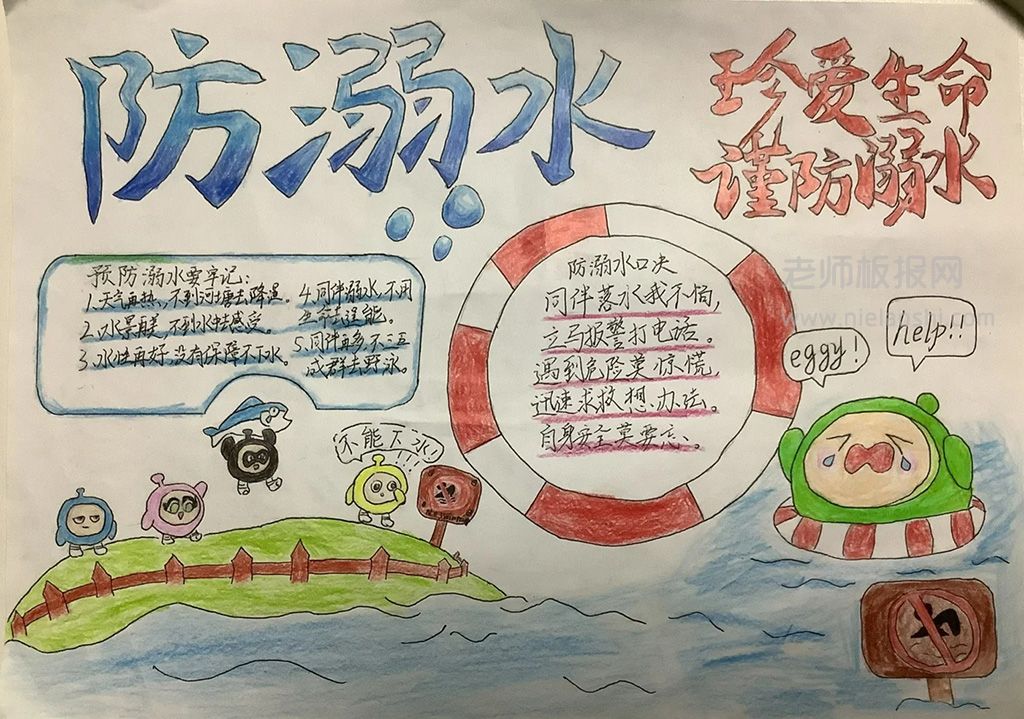 防溺水
珍爱生命
谨防溺水
预防溺水要牢记:
1.天气再热,不到河塘去降温。
2.水景再美,不到水中去感受。
3.水性再好,没有保障不下水。
4.同伴溺水,不用
生命去逞能。
5.同伴再多,不三五
成群去野泳。
防溺水口决
同伴落水我不怕,
立马报警打电话。
遇到危险莫惊慌,
迅速求救想办法。
自身安全莫要忘。
老师板报网
eggy!
help!!
不能下水!